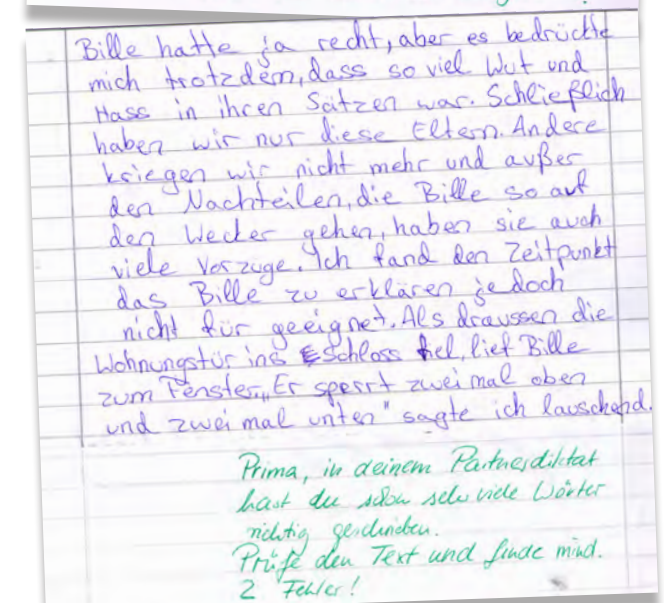 Bille hatte ja recht, aber es bedrückte
mich trotzdem, dass so viel Wut und
Hass in ihren Sätzen war. Schließlich
haben wir nur diese Eltern. Andere
kriegen wir nicht mehr und außer
den Nachteilen, die Bille so auf
den Wecker gehen, haben sie auch
viele Vorzuge. Ich fand den Zeitpunkt
das Bille zu erklären jedoch
nicht für geeignet. Als draussen die
Wohnungstür ins Schloss fiel, lief Bille
zum Fenster „Er sperrt zwei mal oben
und zwei mal unten" sagte ich lauschend.
Prima, in deinem Partnerdiktat
hast du schon sehr viele Wörter
richtig geschrieben.
Prüfe den Text und finde mind.
2 Fehler!